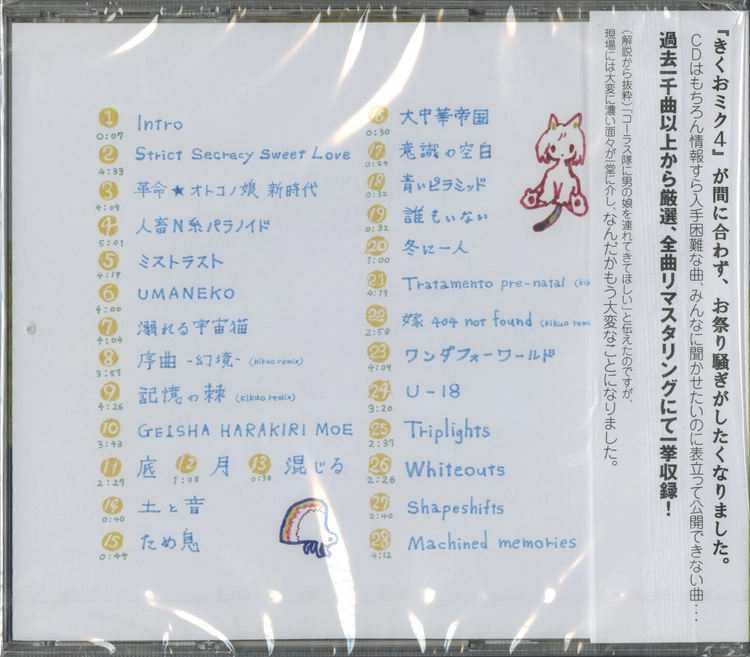 1 Intro
0:07
2 Strict Secrecy Sweet Love
4:33
3 革命★オトコノ娘 新時代
4:09
4 人畜N系パラノイド
5:01
5 ミストラスト
4:19
6 UMANEKO
4:00
7 溺れる宇宙猫
4:04
8 序曲 -幻境- (kikuo remix)
3:57
9 記憶の棘 (kikuo remix)
4:26
10 GEISHA HARAKIRI MOE
3:43
11 底 12 月 13 混じる
2:27 1:08 0:38
14 土と音
0:40
15 ため息
0:44
16 大中華帝国
0:30
17 意識の空白
0:29
18 青いピラミッド
0:32
19 誰もいない
0:32
20 冬に一人
1:00
21 Tratamento pre-natal (kik
4:19
22 嫁 404 not found (kik
2:58
23 ワンダフォーワールド
4:09
24 U-18
3:20
25 Triplights
2:37
26 Whiteouts
2:26
27 Shapeshifts
2:40
28 Machined memories
4:12
『きくおミク4』が間に合わず、お祭り騒ぎがしたくなりました。
CDはもちろん情報すら入手困難な曲、みんなに聞かせたいのに表立って公開できない曲…
過去一千曲以上から厳選、全曲リマスタリングにて一挙収録!
(解説から抜粋)「コーラス隊に男の娘を連れてきてほしい」と伝えたのですが、
現場には大変に濃い面々が一堂に介し、なんだかもう大変なことになりました。